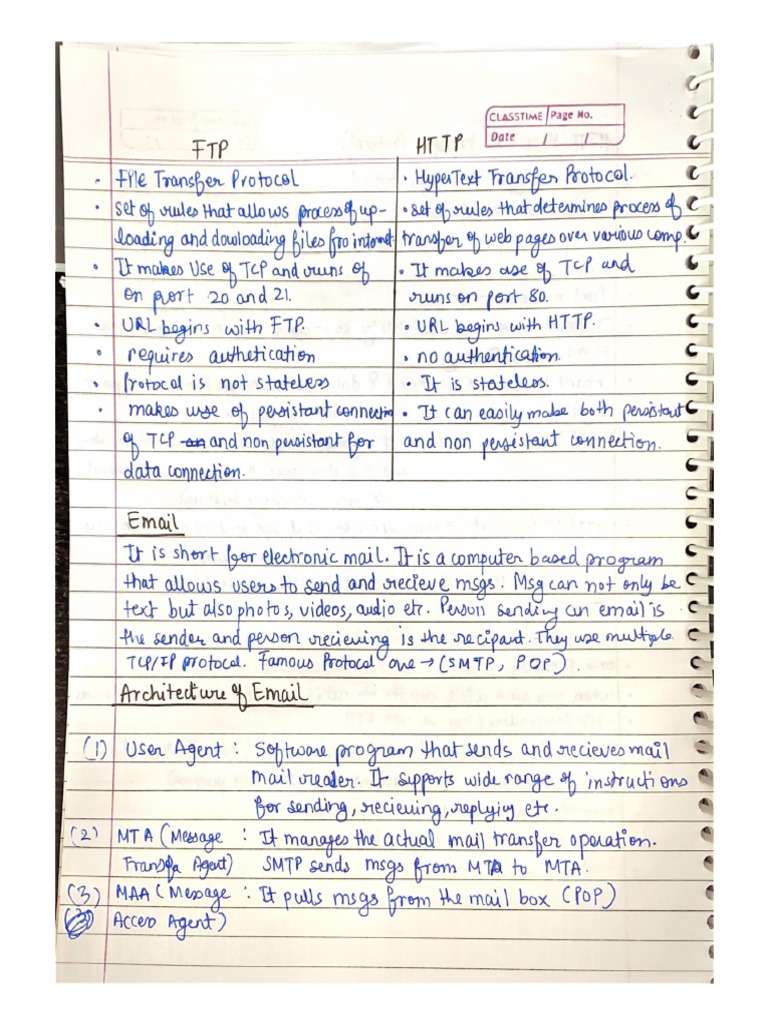 CLASSTIME Page No.
Date / /
FTP
• File Transfer Protocol
• set of rules that allows process of up-
loading and dowloading files fro internet
• It makes Use of TCP and runs of
on port 20 and 21.
• URL begins with FTP.
• requires authetication
• Protocol is not stateless
• makes use of persistant connection
of TCP and non persistant for
data connection.
HTTP
• HyperText Transfer Protocol.
• set of rules that determines process of
transfer of web pages over various comp.
• It makes use of TCP and
runs on port 80.
• URL begins with HTTP.
• no authentication.
• It is stateless.
• It can easily make both persistant
and non persistant connection.
Email
It is short for electronic mail. It is a computer based program
that allows users to send and recieve msgs. Msg can not only be
text but also photos, videos, audio etc. Person sending an email is
the sender and person recieving is the recipant. They use multiple
TCP/IP protocol. Famous Protocol are → (SMTP, POP).
Architecture of Email
(1) User Agent : Software program that sends and recieves mail
mail reader. It supports wide range of instructions
for sending, recieving, replyiy etc.
(2) MTA (Message : It manages the actual mail transfer operation.
Transfer Agent) SMTP sends msgs from MTA to MTA.
(3) MAA (Message : It pulls msgs from the mail box (POP)
Access Agent)